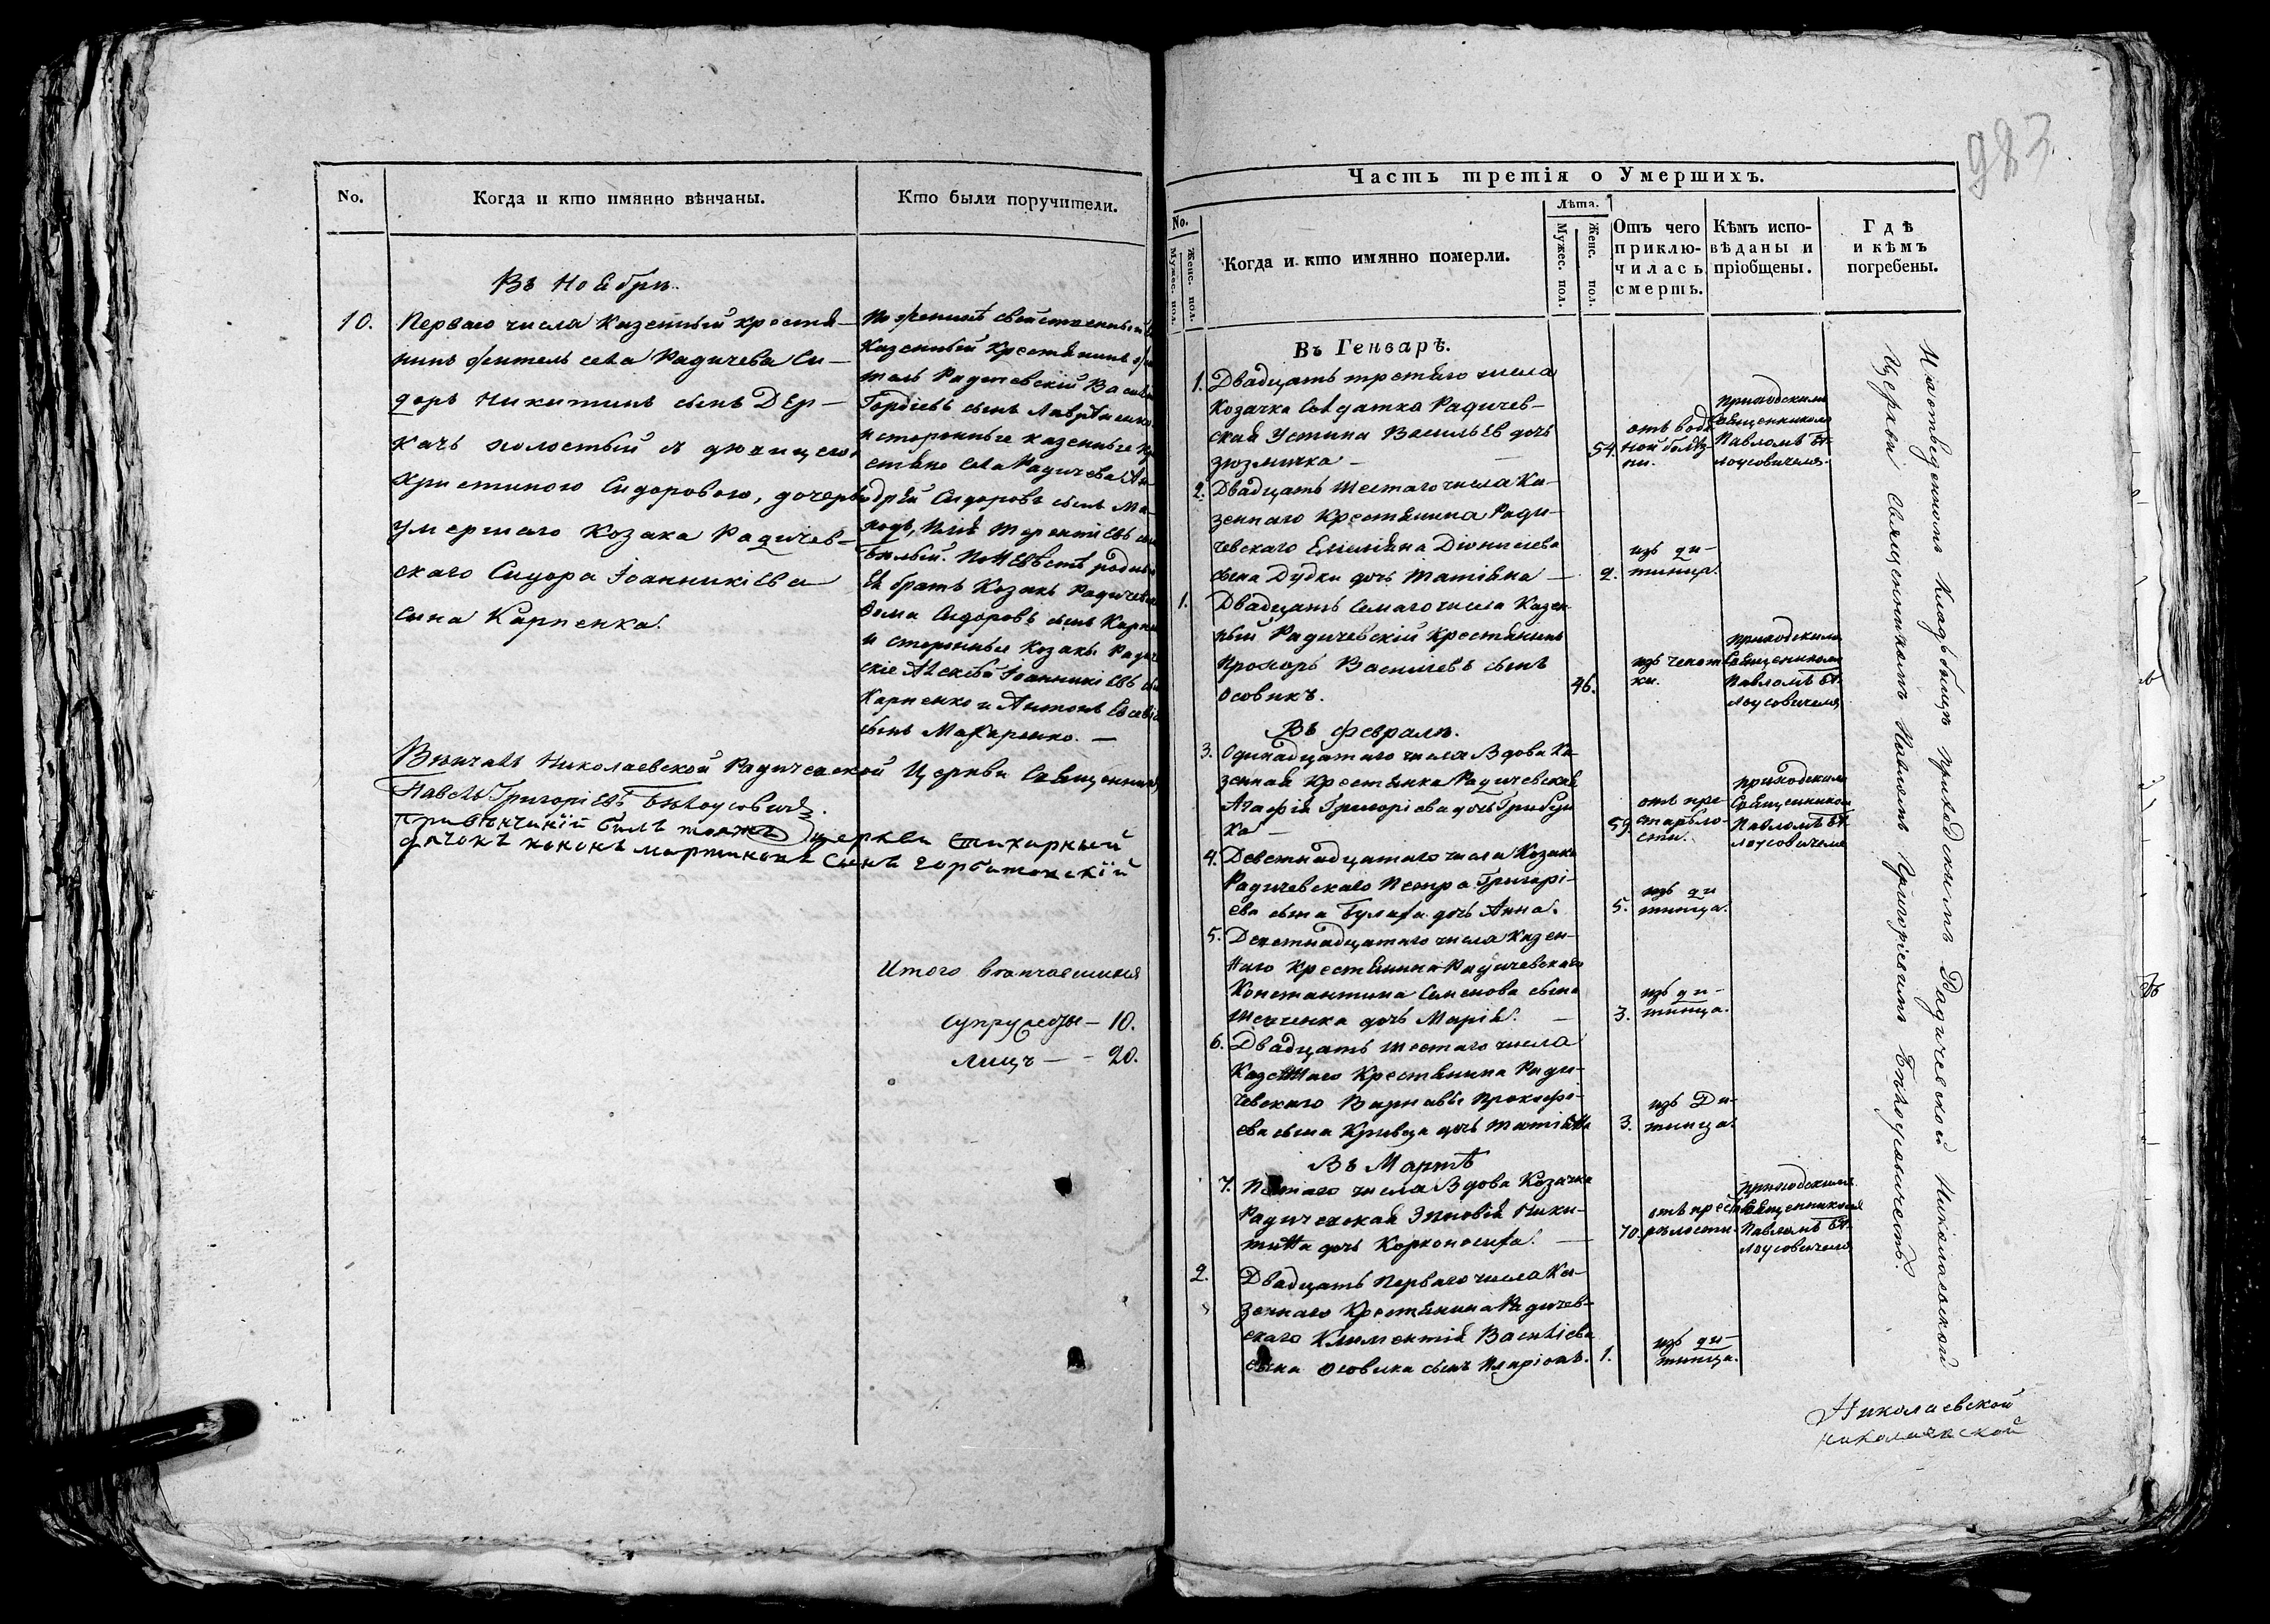 983
No.
Когда и кто имянно вѣнчаны.
Кто были поручители.
Въ Ноябри.
10.
Перваго числа Казенный крестя-
нинъ житель села Радичева Си-
доръ Никитинъ сынъ Дер-
качъ холостый з дѣвицею
Христиною Сидоровою, дочерю
умершаго Козака Радичев-
скаго Сидора Іоанникіева
сына Карпенка.
По женихѣ свойственный
Казенный Крестянинъ жи
тель Радичевскій Василій
Гордіевъ сынъ
и сторонные казенные кр
стяне села Радичева Ан
дрей Сидоровъ сынъ Ма-
Илія Терентіевъ
Бѣлый. По невѣстѣ родный
Ея братъ Козакъ Радичевск
Фома Сидоровъ сынъ Карпен
и сторонные Козаки Радиче
скіе Алексѣй Іоанникіевъ сы
Карпенко и Антонъ Евсевіе
сынъ Макаренко. —
Вѣнчалъ Николаевской Радичевской Церкви Священникъ
Павелъ Григоріевъ Бѣлоусовичъ.
При вѣнчаніи былъ тояжъ церкви стихарный
дячокъ Кононъ Мартиновъ сынъ Горбатовскій
Итого вѣнчавшихся
супружествъ — 10.
лицъ — - 20.
Часть третія о Умершихъ.
No.
Мужес. пол.
Женс. пол.
Когда и кто имянно померли.
Лѣта.
Мужес. пол.
Женс. пол.
Отъ чего
приклю-
чилась
смерть.
Кѣмъ испо-
вѣданы и
пріобщены.
Гдѣ
и кѣмъ
погребены.
Въ Генварѣ.
1. Двадцать третяго числа
Козачка Солдатка Радичев-
ская Устина Васильев дочь
54.
отъ водя
ной болѣз-
ни.
приходскимъ
Священникомъ
Павломъ Бѣ-
лоусовичемъ.
2. Двадцать шестаго числа Ка-
зеннаго Крестянина Ради-
чевскаго Емиліяна Діонисіева
сына Дудки дочь Татіяна —
2.
изъ ди-
тинца.
1. Двадцать Семаго числа Казен
ный Радичевскій Крестянинъ
Прохоръ Василіевъ сынъ
Осовикъ.
46.
изъ чехот
ки.
приходскимъ
Священникомъ
Павломъ Бѣ-
лоусовичемъ
Въ Февралѣ.
3. Одинадцатаго числа Вдова Ка-
зенная Крестянка Радичевская
Агафія Григоріева дочь
59.
отъ пре
старѣло-
сти.
приходскимъ
Священникомъ
Павломъ Бѣ-
лоусовичемъ
4. Деветнадцатаго числа Козака
Радичевскаго Петра Григорі-
ева сына Булаха дочь Анна.
5.
изъ ди
тинца.
5. Деветнадцатаго числа Казен-
наго Крестянина Радичевскаго
Константина Семенова сына
Шевченка дочь Марія. —
3.
изъ ди-
тинца.
6. Двадцать шестаго числа
Казеннаго Крестянина Ради-
чевскаго Варнавы Прокофі-
ева сына Кривца дочь Татіяна
3.
изъ Ди-
тинца.
Въ Мартѣ
7. Пятаго числа Вдова Козачка
Радичевская Зиновія Ники-
тина дочь —
70.
отъ преста
рѣлости.
приходскимъ
Священникомъ
Павломъ Бѣ-
лоусовичемъ
2. Двадцать Перваго числа Ка-
зеннаго Крестянина Радичев-
скаго Климентія Василіева
сына Осовика сынъ Иларіонъ.
1.
изъ ди-
тинца.
На отведенномъ кладбищѣ приходскимъ Радичевской Николаевской
Церкви Священникомъ Павломъ Григоріевымъ Бѣлоусовичемъ.
Николаевской
Николаевской